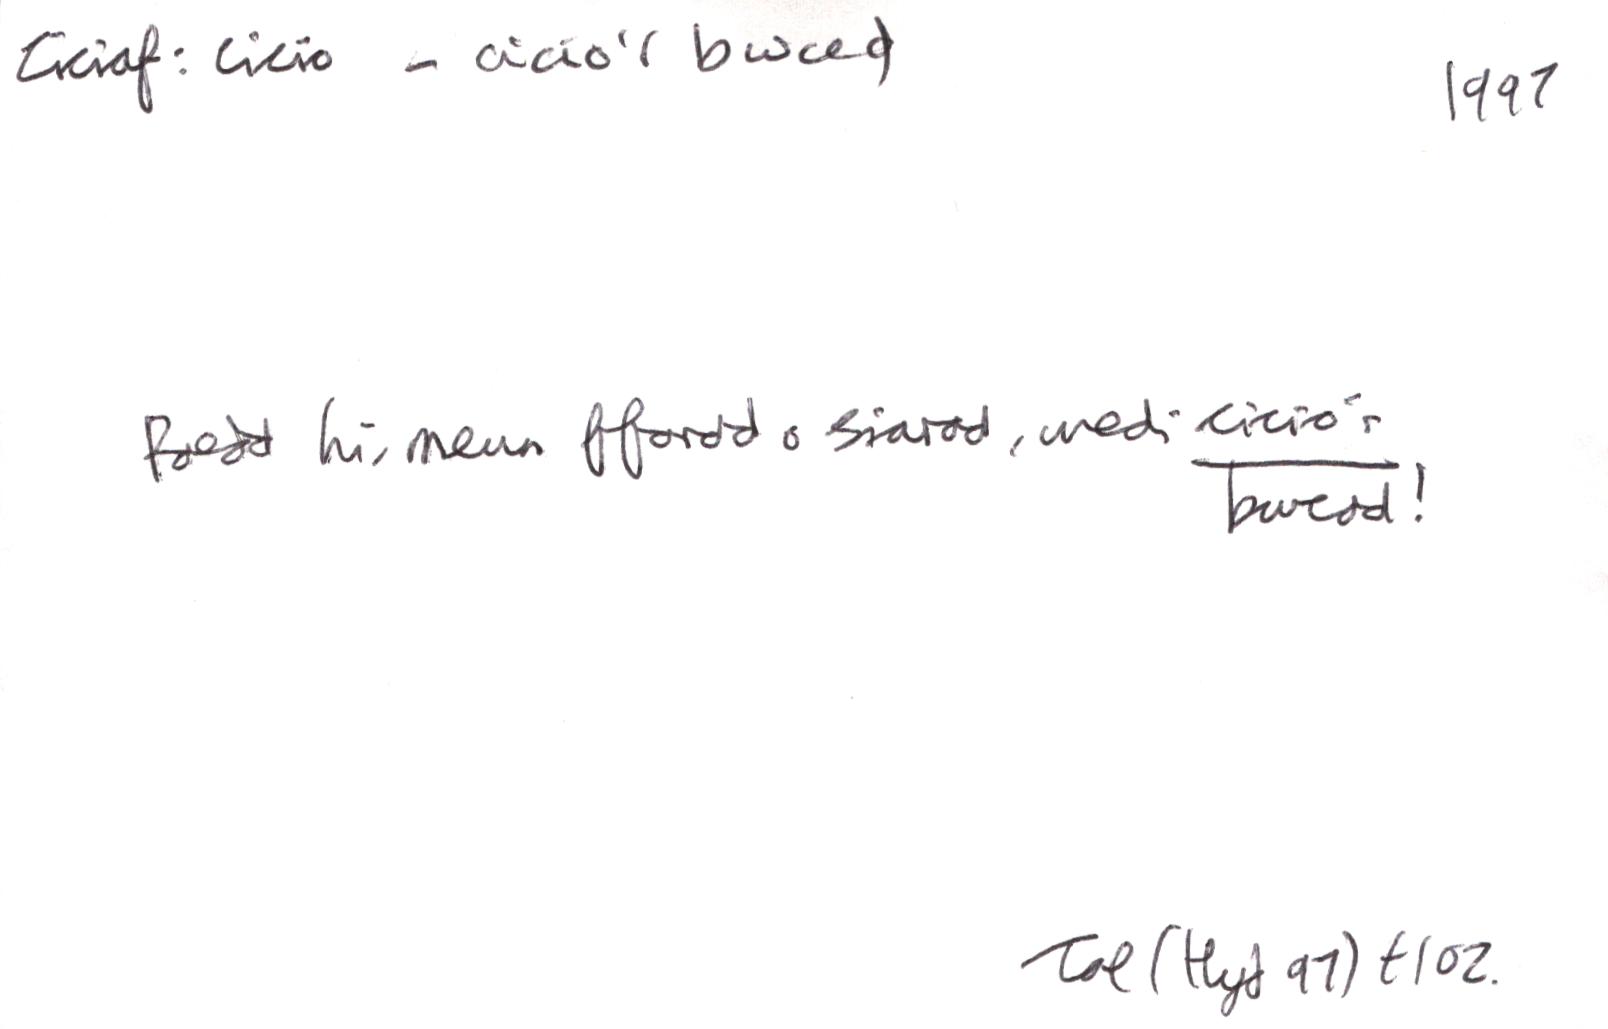 Ciciaf: cicio - cicio'r bwced
1997
Roedd hi, mewn ffordd o siarad, wedi cicio'r
bwced!
Tal (Hyd 97) t102.